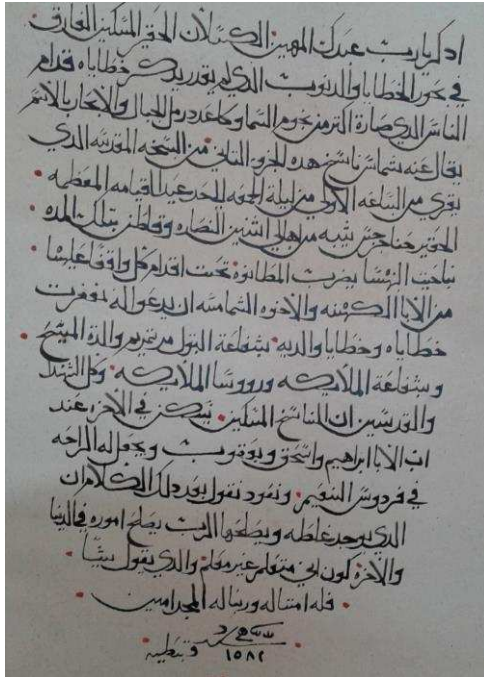 اذكر يارب عبدك المهين الكسلان الحقير المسكين الغارق
في بحور الخطايا والدنوب الدي لم يقدر يدكر خطاياه قدام
الناس الدي صارة اكتر من نجوم السما وكما عدد رمل الجبال والابحار بالاسم
يقال عنه شماس ناسخ هده الجزو التاني من النسخه المقدسه الدي
يقري من الساعه الاولي من ليلة الجمعه لحد عيد القيامه المعظمه
الحقير حنا جرجس من اهالي النصاره وقاطن بتلك المده
يضرب المطانوة تحت اقدام كل واقفا عليها
من الابا الكهنه والاخوه الشمامسه ان يدعوا له بمغفرت
خطاياه وخطايا والديه بشفاعة البتول مرتمريم والدة المسيح
وبشفاعة الملايكه ورووسا الملايكه وكل الشهدا
والقدسين ان الناسخ المسكين في الاخره عند
ابا الابا ابراهيم واسحق ويعقوب ويجعل له الراحه
في فردوس النعيم ونعود نقول بعد دلك الكلام ان
الدي يوجد غلطه ويصلحها الرب يصلح اموره في الدنيا
والاخرة كون اني متعلم غير معلم والدي يقول بيتا
فله امتاله وربنا له المجد امين
سنه
١٥٨٢ قبطيه